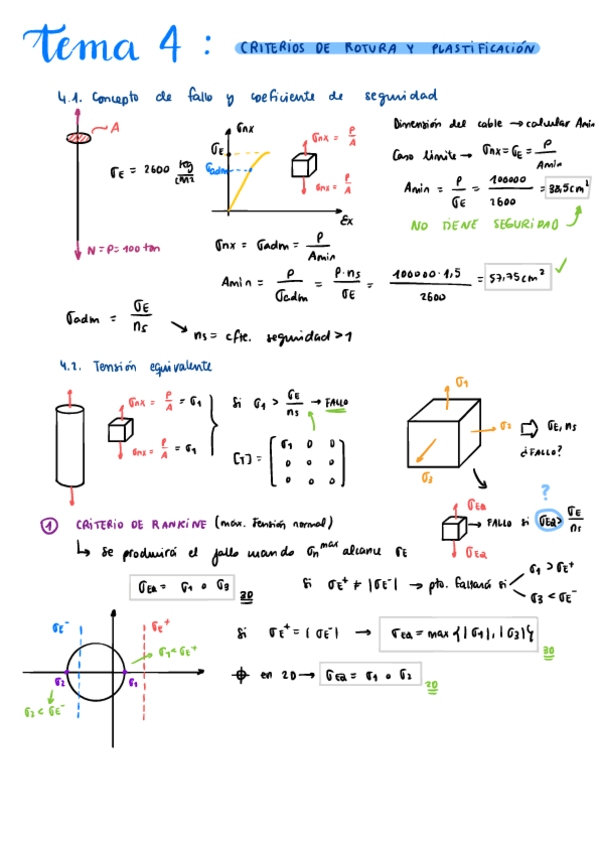 Tema 4 : CRITERIOS DE ROTURA Y PLASTIFICACIÓN
4.1. Concepto de fallo y coeficiente de seguridad
A
σE = 2600 kg/cm2
N = P = 100 ton
σnx
σE
σadm
εx
σnx = P/A
σnx = P/A
Dimensión del cable → calcular Amin
Caso límite → σnx = σE = P/Amin
Amin = P/σE = 100000/2600 = 38,5cm²
NO TIENE SEGURIDAD
σnx = σadm = P/Amin
Amin = P/σadm = P·ns/σE = 100000·1,5/2600 = 57,75cm² ✓
σadm = σE/ns
ns = cfte. seguridad > 1
4.2. Tensión equivalente
σnx = P/A = σ1
σnx = P/A = σ1
Si σ1 > σE/ns → FALLO
[T] = ( σ1 0 0
0 0 0
0 0 0 )
σ1
σ2
σ3
⇨ σE, ns
¿FALLO?
?
σEQ
→ FALLO si σEQ > σE/ns
σEQ
① CRITERIO DE RANKINE (máx. tensión normal)
↳ Se producirá el fallo cuando σn^max alcance σE
σEQ = σ1 o σ3 3D
Si σE+ ≠ |σE-| → pto. fallará si σ1 > σE+
σ3 < σE-
Si σE+ = |σE-| → σEQ = max {|σ1|, |σ3|} 3D
en 2D → σEQ = σ1 o σ2 2D
σE-
σE+
σ1 < σE+
σ2
σ1
σ2 < σE-